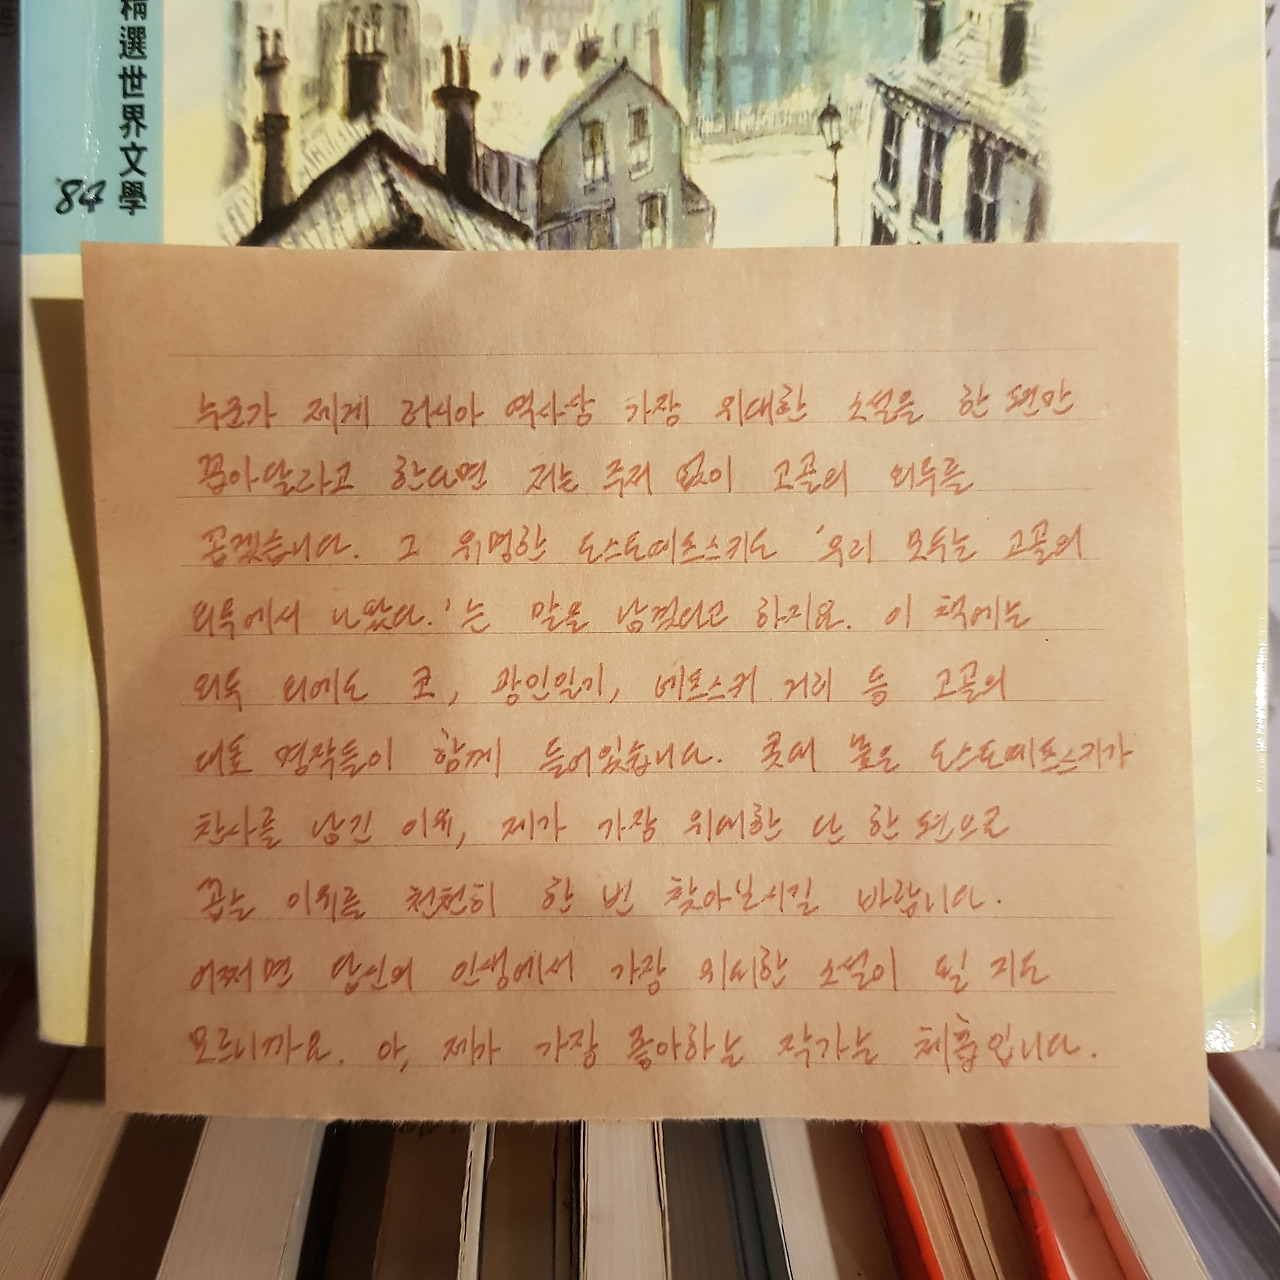 精選世界文學
'84
누군가 제게 러시아 역사상 가장 위대한 소설을 한 편만
꼽아달라고 한다면 저는 주저 없이 고골의 외투를
꼽겠습니다. 그 유명한 도스토예프스키도 '우리 모두는 고골의
외투에서 나왔다.'는 말을 남겼다고 하지요. 이 책에는
외투 외에도 코, 광인일기, 네프스키 거리 등 고골의
대표 명작들이 함께 들어있습니다. 콧대 높은 도스토예프스키가
찬사를 남긴 이유, 제가 가장 위대한 단 한 편으로
꼽는 이유를 천천히 한 번 찾아보시길 바랍니다.
어쩌면 당신의 인생에서 가장 위대한 소설이 될 지도
모르니까요. 아, 제가 가장 좋아하는 작가는 체홉입니다.